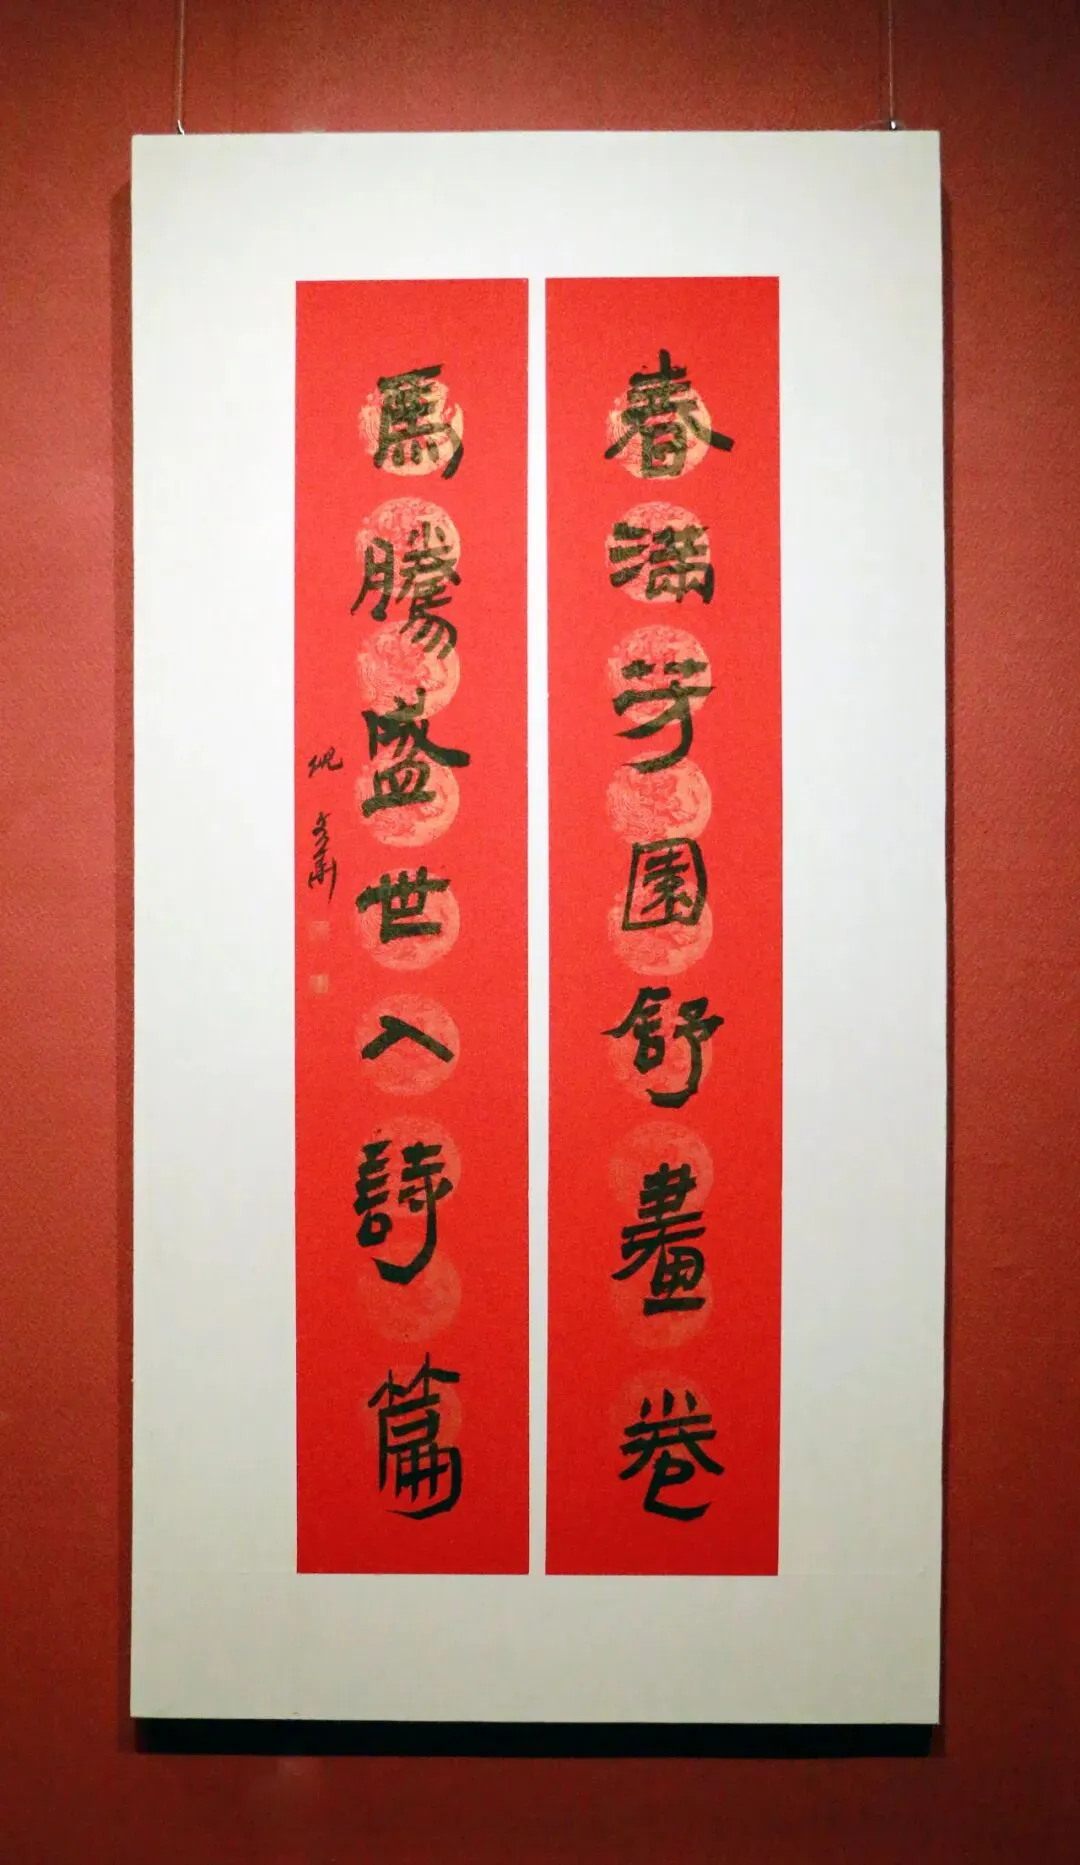 春满芳園舒畫卷
馬騰盛世入詩篇